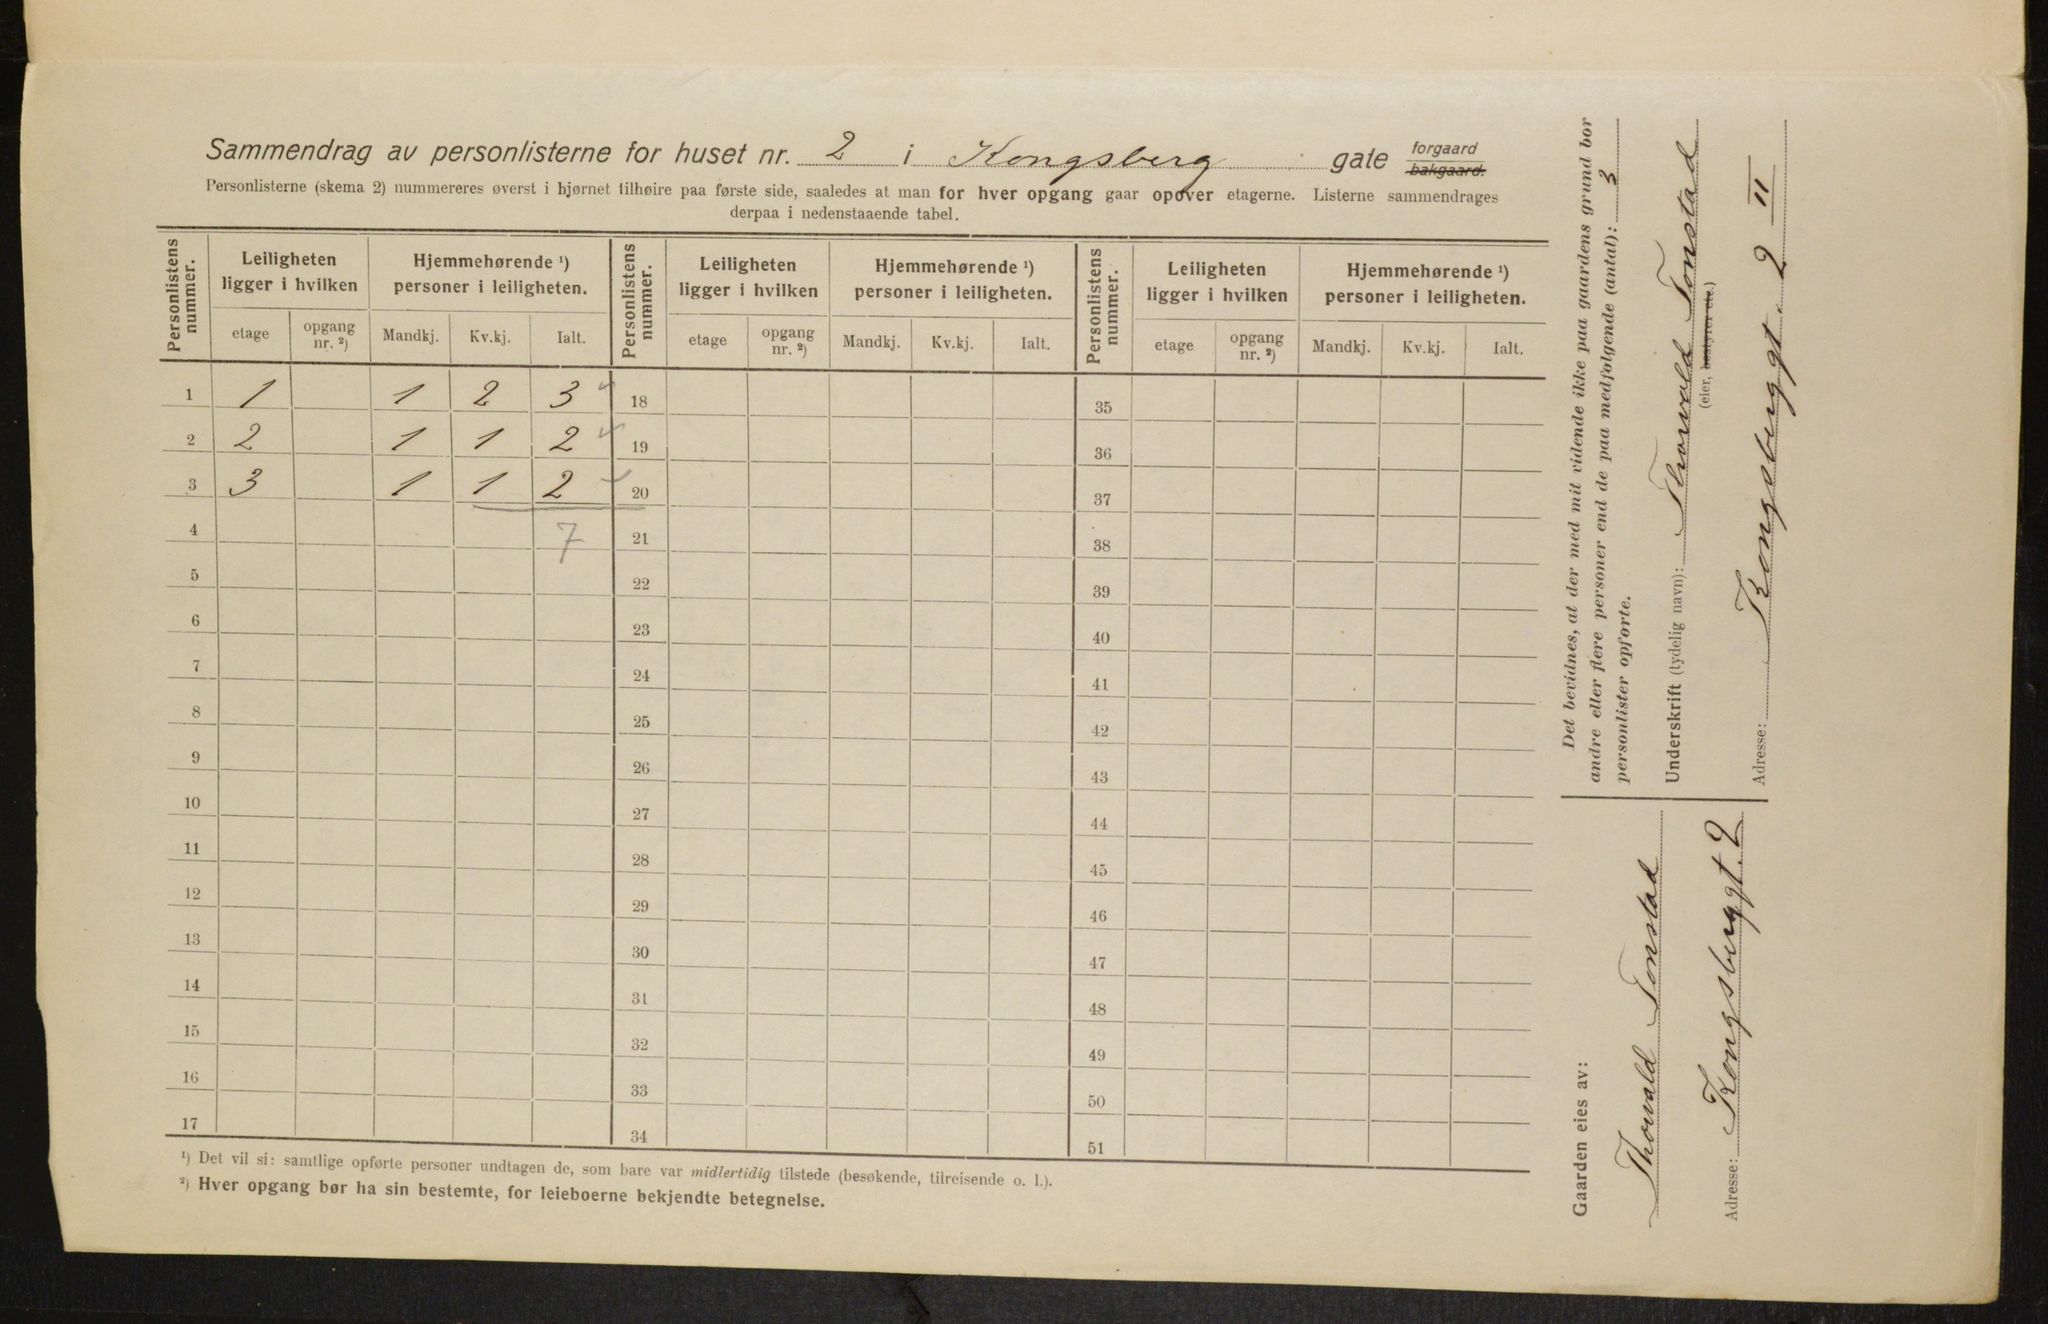 Sammendrag av personlisterne for huset nr. 2 i Kongsberg gate forgaard bakgaard.
Personlisterne (skema 2) nummereres øverst i hjørnet tilhøire paa første side, saaledes at man for hver opgang gaar opover etagerne. Listerne sammendrages
derpaa i nedenstaaende tabel.
Personlistens nummer. Leiligheten ligger i hvilken Hjemmehørende ¹) personer i leiligheten. Personlistens nummer. Leiligheten ligger i hvilken Hjemmehørende ¹) personer i leiligheten. Personlistens nummer. Leiligheten ligger i hvilken Hjemmehørende ¹) personer i leiligheten.
etage opgang nr. ²) Mandkj. Kv.kj. Ialt. etage opgang nr. ²) Mandkj. Kv.kj. Ialt. etage opgang nr. ²) Mandkj. Kv.kj. Ialt.
1 1 1 2 3 ✓ 18 35
2 2 1 1 2 ✓ 19 36
3 3 1 1 2 ✓ 20 37
4 7 21 38
5 22 39
6 23 40
7 24 41
8 25 42
9 26 43
10 27 44
11 28 45
12 29 46
13 30 47
14 31 48
15 32 49
16 33 50
17 34 51
¹) Det vil si: samtlige opførte personer undtagen de, som bare var midlertidig tilstede (besøkende, tilreisende o. l.).
²) Hver opgang bør ha sin bestemte, for leieboerne bekjendte betegnelse.
Det bevidnes, at der med mit vidende ikke paa gaardens grund bor
andre eller flere personer end de paa medfølgende (antal): 3
personlister opførte.
Underskrift (tydelig navn): Thorvald Tonstad
(eier, bestyrer etc.)
Adresse: Kongsberggt. 2 II
Gaarden eies av:
Thorvald Tonstad
Adresse: Kongsberggt. 2